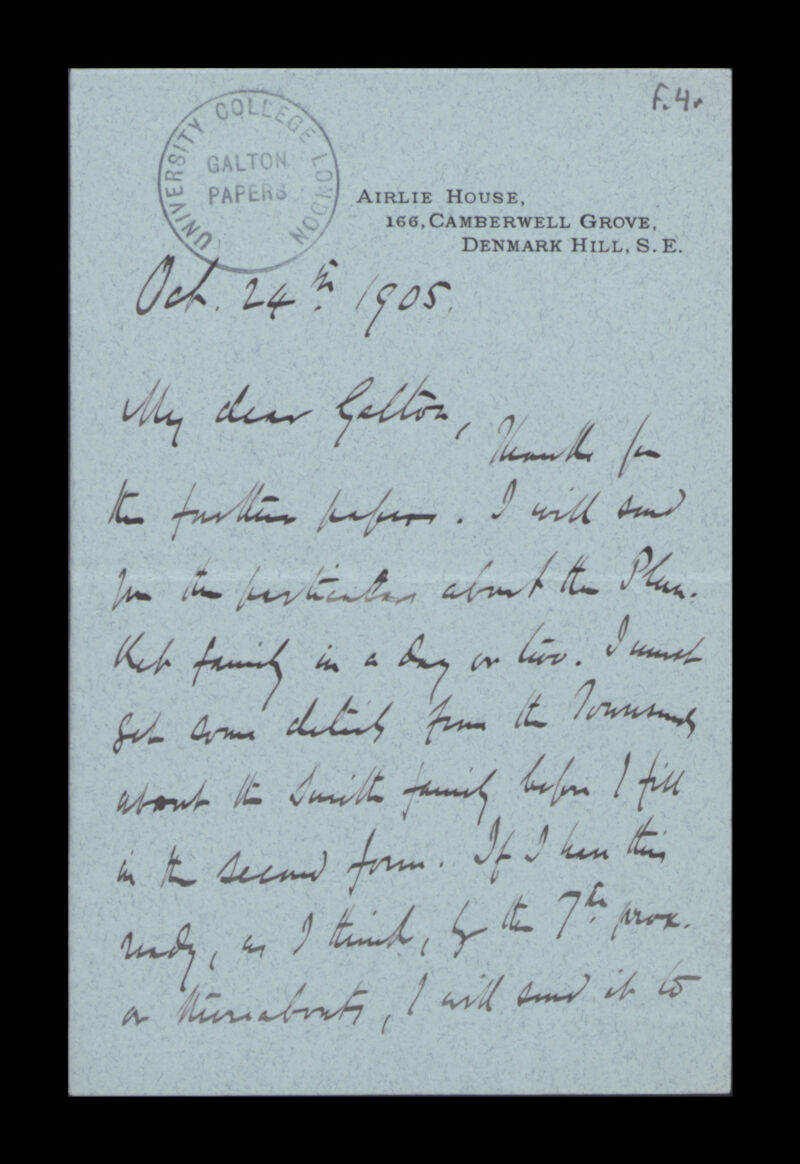 F.4r
UNIVERSITY COLLEGE LONDON
GALTON
PAPERS
AIRLIE HOUSE,
166, CAMBERWELL GROVE,
DENMARK HILL, S.E.
Oct. 24th. 1905.
My dear Galton,
Thanks for
the further papers. I will send
you the particulars about the Plun-
ket family in a day or two. I must
get some details from the Townsends
about the Smith family before I fill
in the second form. If I have this
ready, as I think, by the 7th. prox.
or thereabouts, I will send it to